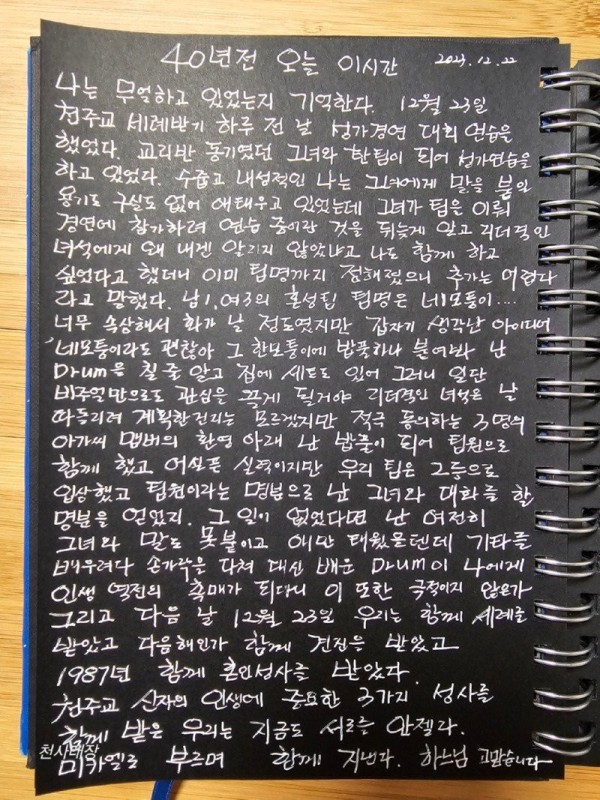 40년전 오늘 이시간 2023.12.22
나는 무얼하고 있었는지 기억한다. 12월 23일
천주교 세례받기 하루 전 날 성가경연 대회 연습을
했었다. 교리반 동기였던 그녀와 한팀이 되어 성가연습을
하고 있었다. 수줍고 내성적인 나는 그녀에게 말을 붙일
용기도 구실도 없어 애태우고 있었는데 그녀가 팀을 이뤄
경연에 참가하려 연습 중이란 것을 뒤늦게 알고 리더격인
녀석에게 왜 내겐 알리지 않았냐고 나도 함께 하고
싶었다고 했더니 이미 팀명까지 정해졌으니 추가는 어렵다
라고 말했다. 남1, 여3의 혼성팀 팀명은 네모퉁이....
너무 속상해서 화가 날 정도였지만 갑자기 생각난 아이디어
네모퉁이라도 괜찮아 그 한모퉁이에 밥풀하나 붙여봐 난
Drum을 칠 줄 알고 집에 세트도 있어 그러니 일단
비주얼만으로도 관심을 끌게 될거야 리더격인 녀석은 날
따돌리려 계획한건지는 모르겠지만 적극 동의하는 3명의
아가씨 멤버의 환영 아래 난 밥풀이 되어 팀원으로
함께 했고 어설픈 실력이지만 우리 팀은 2등으로
입상했고 팀원이라는 명분으로 난 그녀와 대화를 할
명분을 얻었지. 그 일이 없었다면 난 여전히
그녀와 말도 못붙이고 애만 태웠을텐데 기타를
배우려다 손가락을 다쳐 대신 배운 Drum이 나에게
인생 역전의 촉매가 되다니 이 또한 극적이지 않은가
그리고 다음 날 12월 23일 우리는 함께 세례를
받았고 다음해인가 함께 견진을 받았고
1987년 함께 혼인성사를 받았다.
천주교 신자의 인생에 중요한 3가지 성사를
함께 받은 우리는 지금도 서로를 안젤라.
미카엘로 부르며 함께 지낸다. 하느님 고맙습니다
천사대장